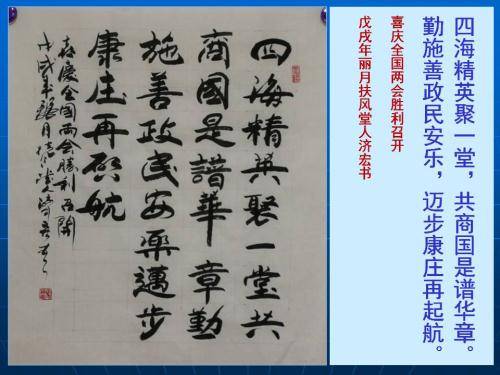 四海精英聚一堂，共商国是谱华章。
勤施善政民安乐，迈步康庄再起航。
喜庆全国两会胜利召开
戊戌年丽月扶风堂人济宏书
四海精英聚一堂共
商國是譜華章勤
施善政民安樂邁步
康庄再启航
喜慶全國兩會勝利召開
戊戌年